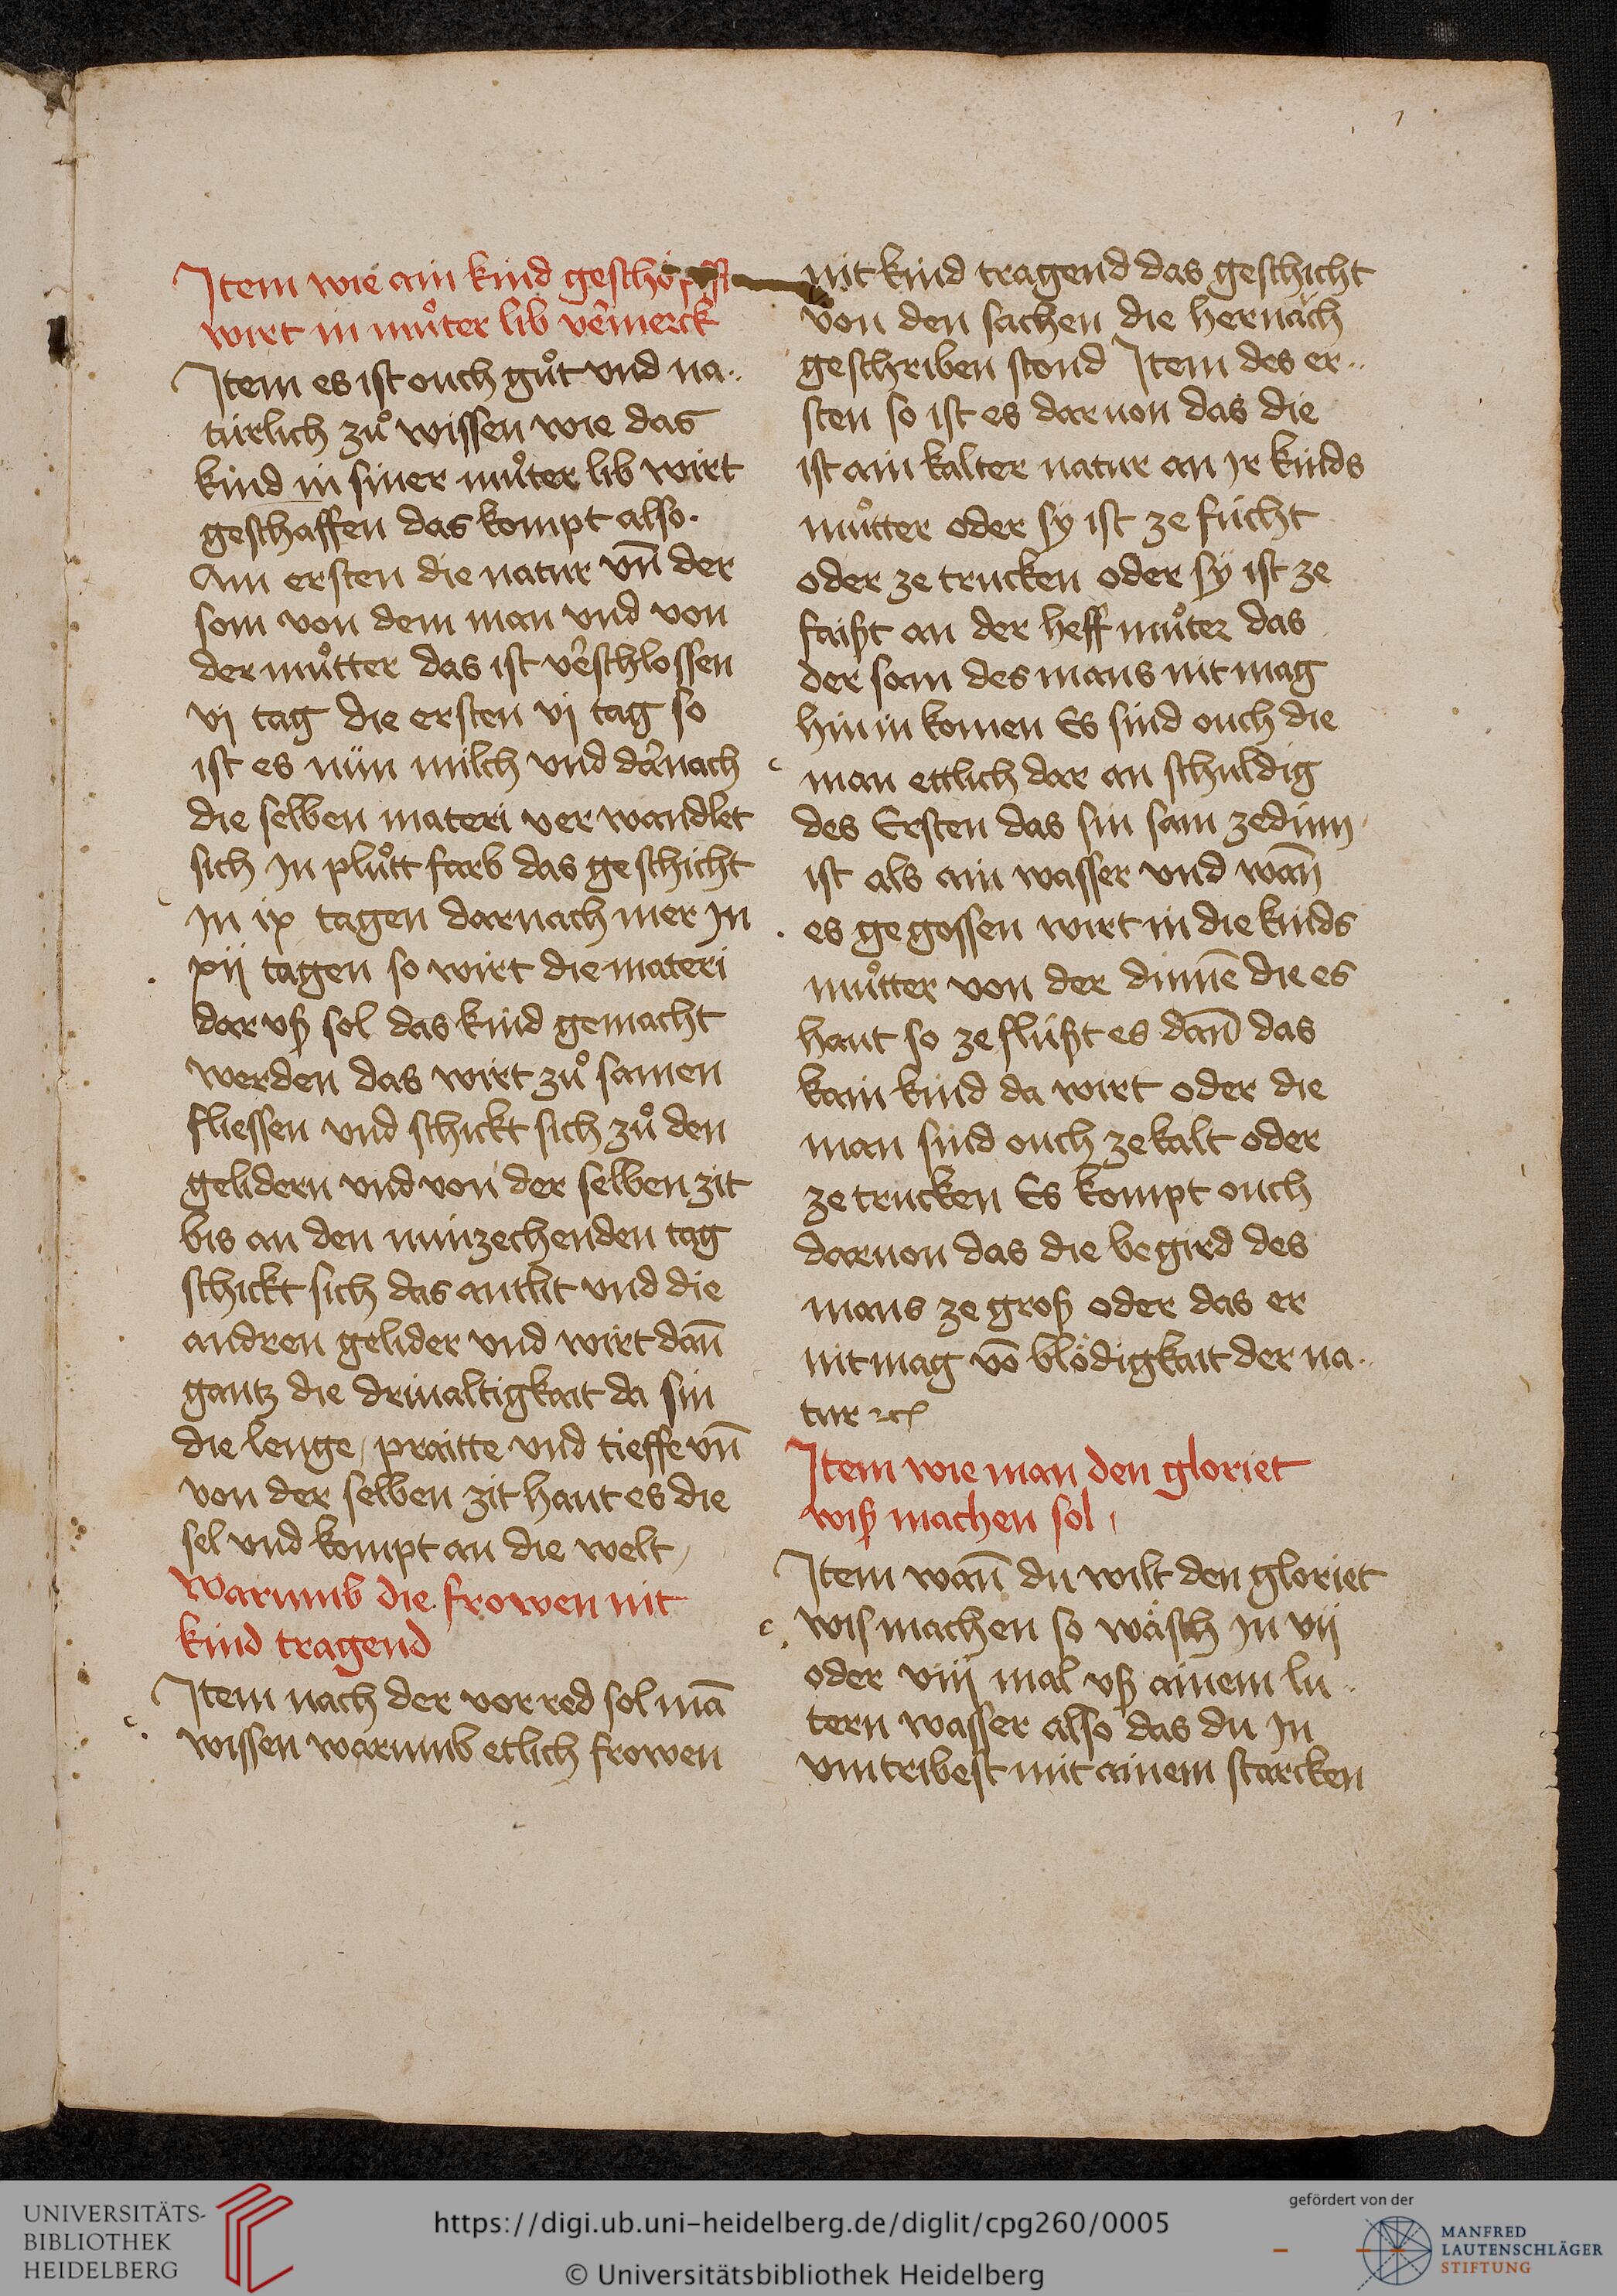 Item wie ain kind geschöpfft
wirt in muͦter lib v̄merck
Item es ist ouch guͦt vnd na..
türlich zuͦ wissen wie das
kind in siner muͦter lib wirt
geschaffen das kompt also.
Am ersten die natur vn̄ der
som von dem man vnd von
der muͦtter das ist v̄schlossen
vj tag die ersten vj tag so
ist es nün milch vnd darnach
die selben materi verwandlet
sich jn pluͦtt farb das geschicht
jn ix tagen darnach mer jn
xij tagen so wirt die materi
dar vß sol das kind gemacht
werden das wirt zuͦ samen
fliessen vnd schickt sich zuͦ den
gelidern vnd von der selben zit
bis an den nünzechenden tag
schickt sich das antlit vnd die
andren gelider vnd wirt dan̄
gantz die driualtigkait da sin
die lenge / praitte vnd tieffe vn̄
von der selben zit haut es die
sel vnd kompt an die welt /
Warumb die frowen nit
kind tragend
Item nach der vorred sol mā
wissen warumb etlich frowen
nit kind tragend das geschicht
von den sachen die hernäch
geschriben stond Item des er..
sten so ist es daruon das die
ist ain kalter natur an jr kinds
muͦtter oder sy ist ze fücht
oder ze trucken oder sÿ ist ze
faißt an der heff muͦter das
der som des mans nit mag
hin in komen Es sind ouch die
man ettlich dar an schuldig
des Ersten das sin sam zedinn
ist als ain wasser vnd wan̄
es gegossen wirt in die kinds
muͦtter von der dinnē die es
haut so ze flüßt es dan̄ das
kain kind da wirt oder die
man sind ouch ze kalt oder
ze trucken Es kompt ouch
daruon das die begird des
mans ze groß oder das er
nit mag vō blödigkait der na..
tur ꝛcͣ
Item wie man den gloriet
wiß machen sol /
Item wan̄ du wilt den gloriet
wis machen so wäsch jn vij
oder viij mal vß ainem lu..
tern wasser also das du jn
vmtribest mit ainem starcken
UNIVERSITÄTS-
BIBLIOTHEK
HEIDELBERG
https://digi.ub.uni-heidelberg.de/diglit/cpg260/0005
© Universitätsbibliothek Heidelberg
gefördert von der
MANFRED
LAUTENSCHLÄGER
STIFTUNG